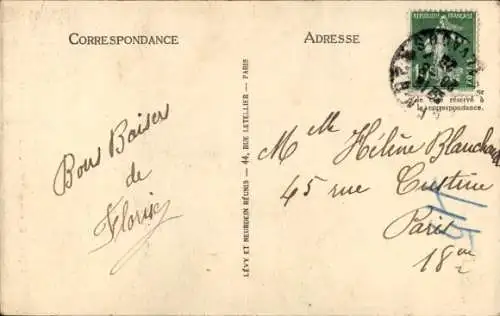 CORRESPONDANCE
Bons Baisers
de
ADRESSE
REPUBLIQUE FRANÇAISE
ce côté réservé à
la correspondance.
LÉVY ET NEURDEIN RÉUNIS — 44, RUE LETELLIER — PARIS
Melle Hélène Blanchard
45 rue Custine
Paris
18em
15